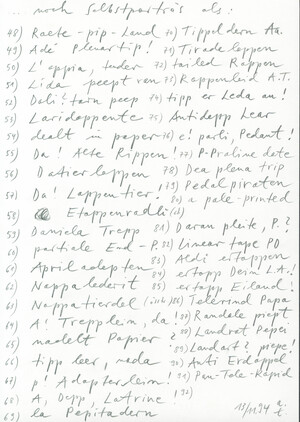 .. noch Selbstporträs als:
48) Raete-pip-Land 70) Tippeldern Aa.
49) Adé Plenartip! 71) Tirade lappen
50) L'appia, teder 72) tailed Rappen
51) Lida peept ran 73) Rappenleid A.T.
52) Dali: tarn peep 74) tipp er Leda an!
53) Laridappente 75) Antidepp Lear
54) dealt in paper 76) e! parli, Pedant!
55) Da! Alte Rippen! 77) P-Praline date
56) Datierlappen 78) Dea plena trip
57) Da! Lappentier! 79) Pedalpiraten
58) Etappenradli 80) a pale-printed
59) Daniela Trepp 81) Daran pleite, P.?
60) partiale End-P. 82) Linear tape PD
61) April adepten 83) Aldi ertappen
62) Nappalederit 84) ertapp Dein L.A.!
63) Nappatierdel 85) ertapp Eiland!
64) A! Trepplein, da! 87) Randale piept
65) madelt Papier? 88) Landrat Papei
66) tipp leer, nada 89) Landart? piepe!
67) p! Adapterlein! 90) Anti Erdäppel
68) A, Depp, Latrine! 91) Pan-Tele-Rapid
69) la Pepitadern 13/11 94